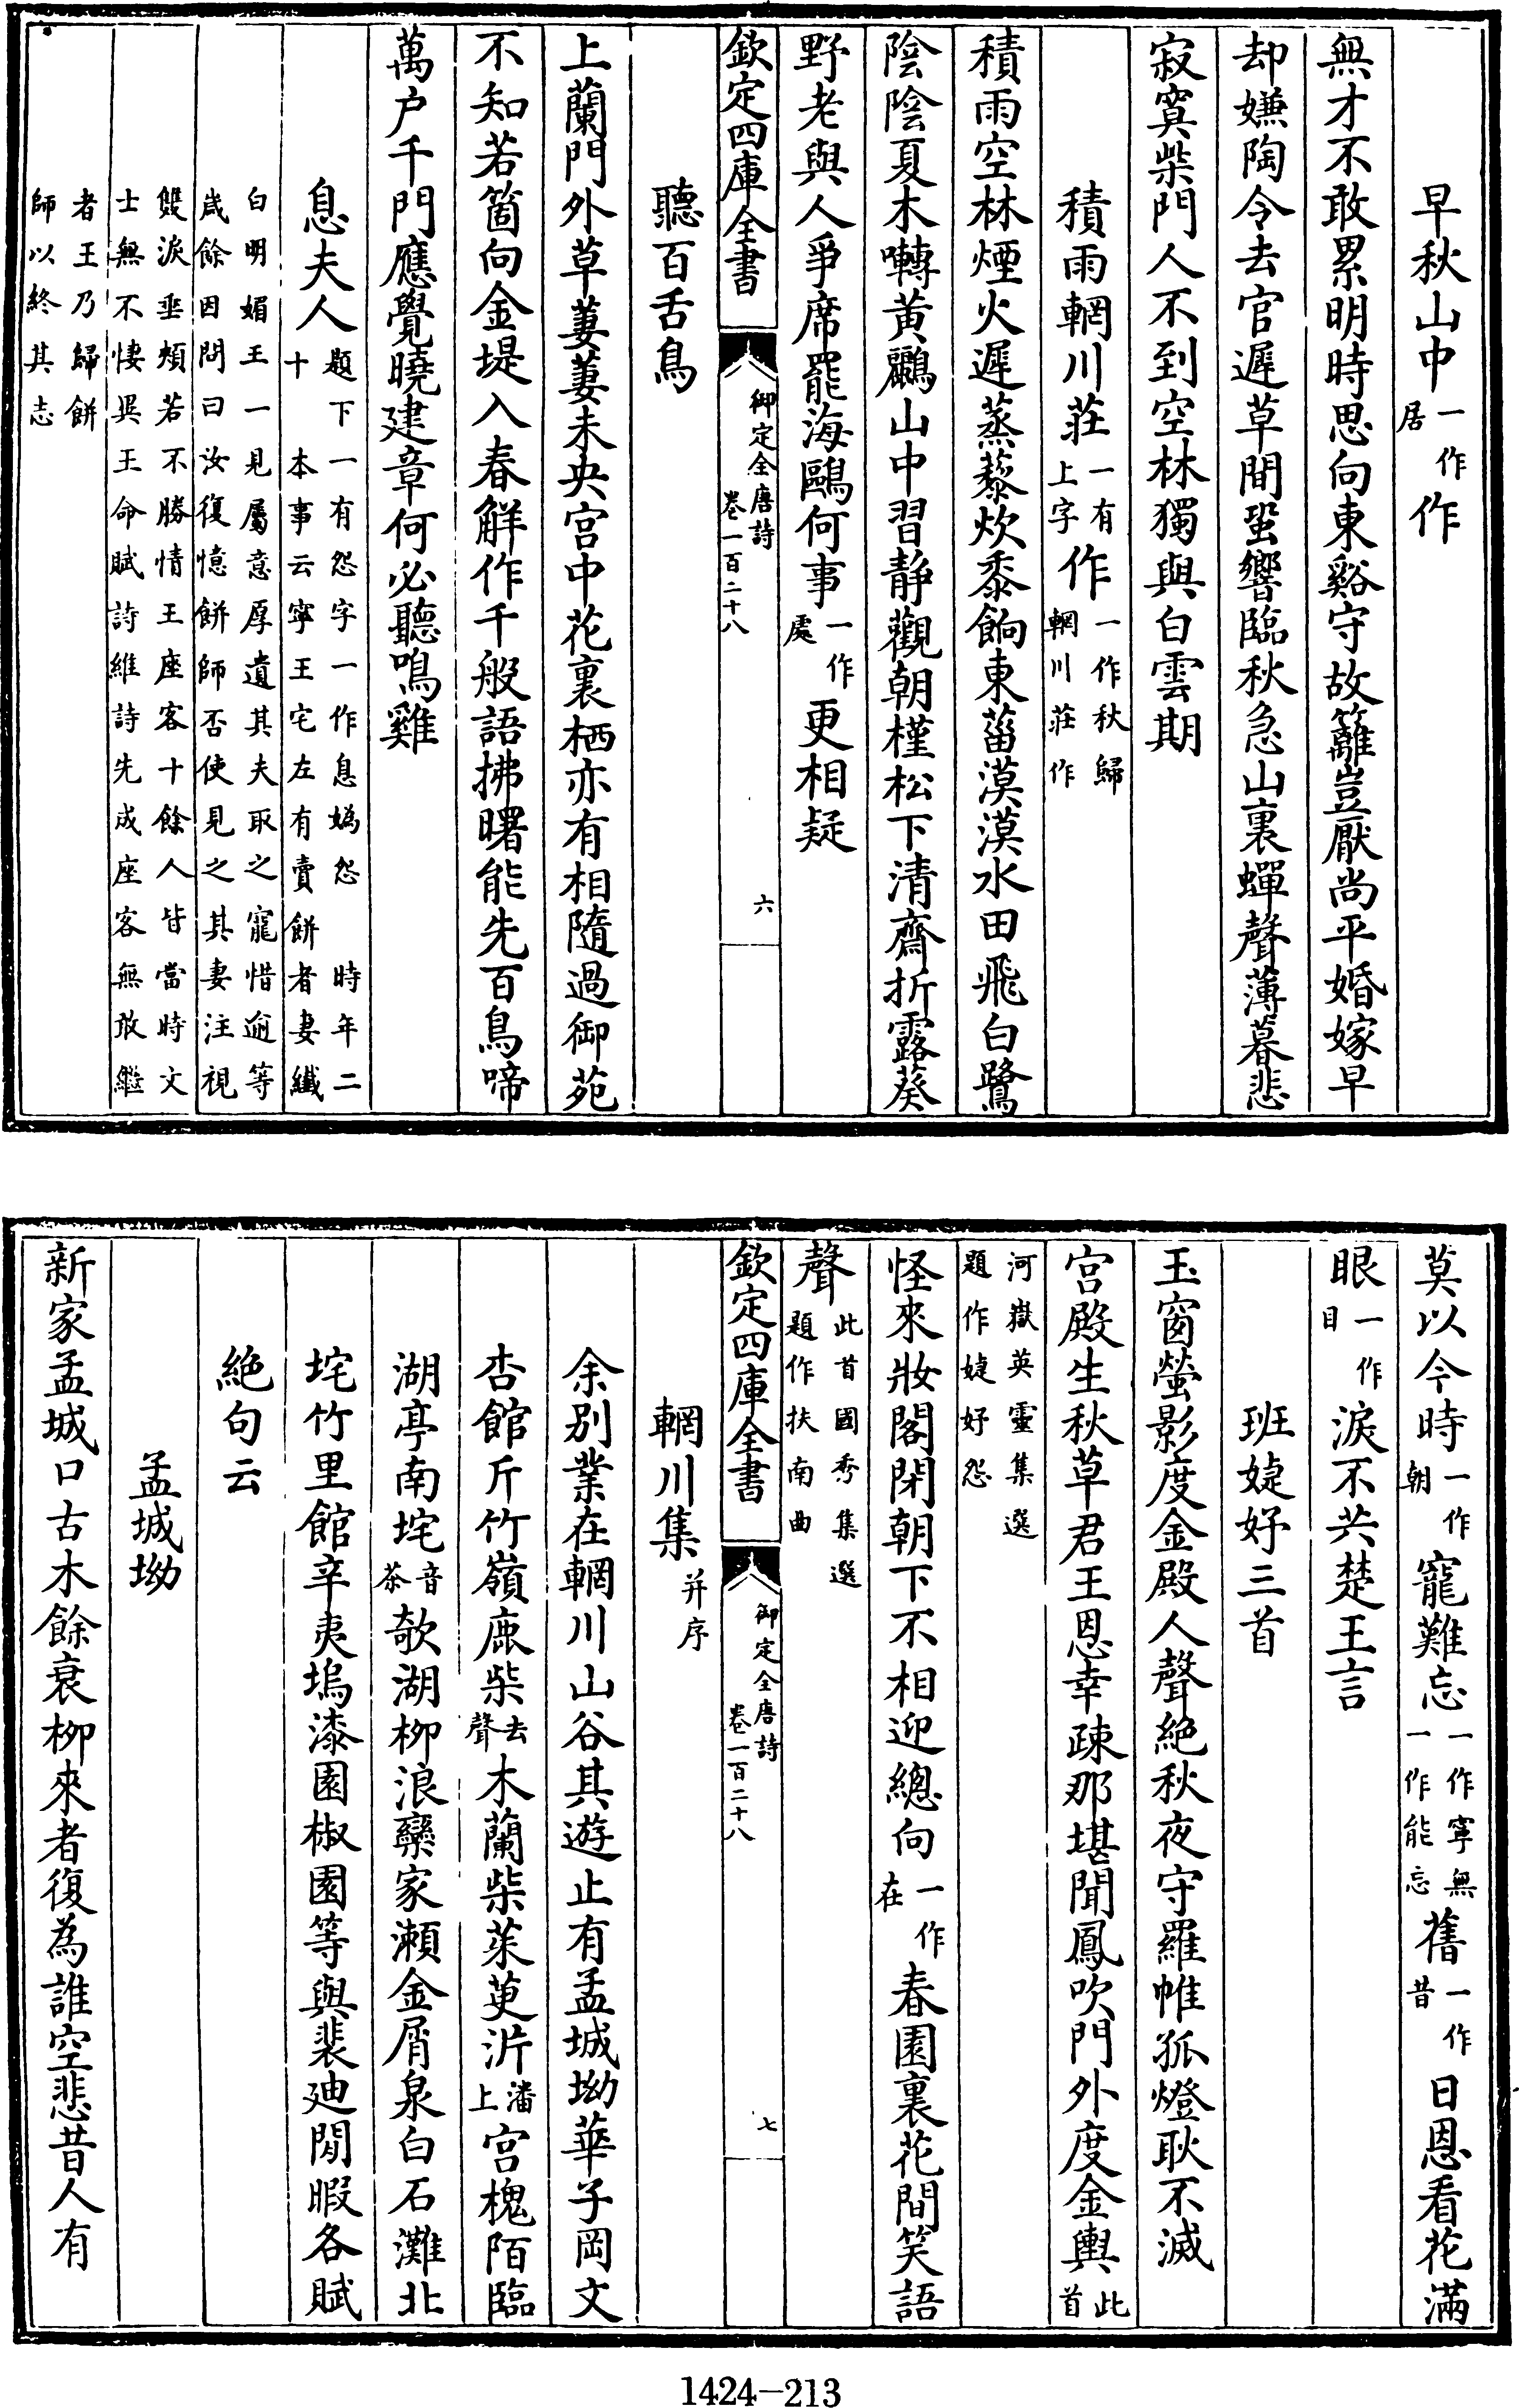 早秋山中一作居作
無才不敢累明時思向東谿守故籬豈厭尚平婚嫁早
却嫌陶令去官遲草間蛩響臨秋急山裏蟬聲薄暮悲
寂寞柴門人不到空林獨與白雲期
積雨輞川莊一有上字作一作秋歸輞川莊作
積雨空林煙火遲蒸藜炊黍餉東菑漠漠水田飛白鷺
陰陰夏木囀黃鸝山中習靜觀朝槿松下清齋折露葵
野老與人爭席罷海鷗何事一作處更相疑
欽定四庫全書 御定全唐詩 卷一百二十八 六
聽百舌鳥
上蘭門外草萋萋未央宮中花裏栖亦有相隨過御苑
不知若箇向金堤入春解作千般語拂曙能先百鳥啼
萬户千門應覺曉建章何必聽鳴雞
息夫人題下一有怨字一作息媯怨 時年二十 本事云寧王宅左有賣餅者妻纖
白明媚王一見屬意厚遺其夫取之寵惜逾等
歲餘因問曰汝復憶餅師否使見之其妻注視
雙淚垂頰若不勝情王座客十餘人皆當時文
士無不悽異王命賦詩維詩先成座客無敢繼
者王乃歸餅
師以終其志
莫以今時一作朝寵難忘一作寧無一作能忘舊一作昔日恩看花滿
眼一作目淚不共楚王言
班婕妤三首
玉窗螢影度金殿人聲絶秋夜守羅帷孤燈耿不滅
宮殿生秋草君王恩幸疎那堪聞鳳吹門外度金輿此首
河嶽英靈集選
題作婕妤怨
怪來妝閣閉朝下不相迎總向一作在春園裏花間笑語
聲此首國秀集選題作扶南曲
欽定四庫全書 御定全唐詩 卷一百二十八 七
輞川集并序
余别業在輞川山谷其遊止有孟城坳華子岡文
杏館斤竹嶺鹿柴去聲木蘭柴茱萸沜潘上宮槐陌臨
湖亭南垞音茶欹湖柳浪欒家瀬金屑泉白石灘北
垞竹里館辛夷塢漆園椒園等與裴迪閒暇各賦
絶句云
孟城坳
新家孟城口古木餘衰柳來者復為誰空悲昔人有
1424-213